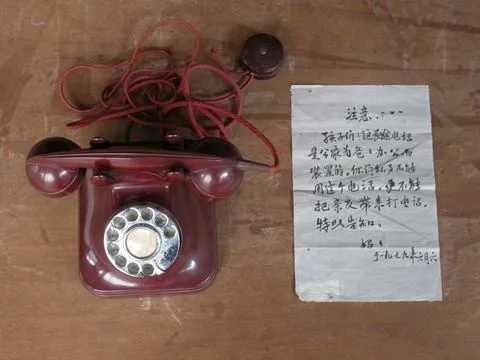 注意……
孩子们：这条途电话
是公家为爸爸办公而
装置的，你们私事不能
用这个电话，更不能
把亲友带来打电话，
特此告知。
妈妈
于一九七九年元月六